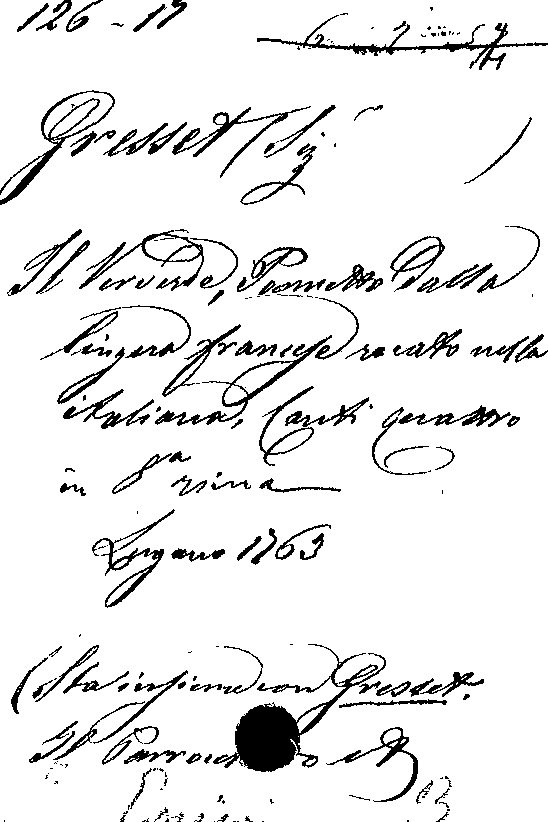 126-17
6 7 54
Gresset (Sig.r )
Il Ververde, Poemetto dalla
lingua francese recato nella
italiana, Canti quattro
in 8.a rima
Lugano 1763
(Sta insieme con Gresset.
Il